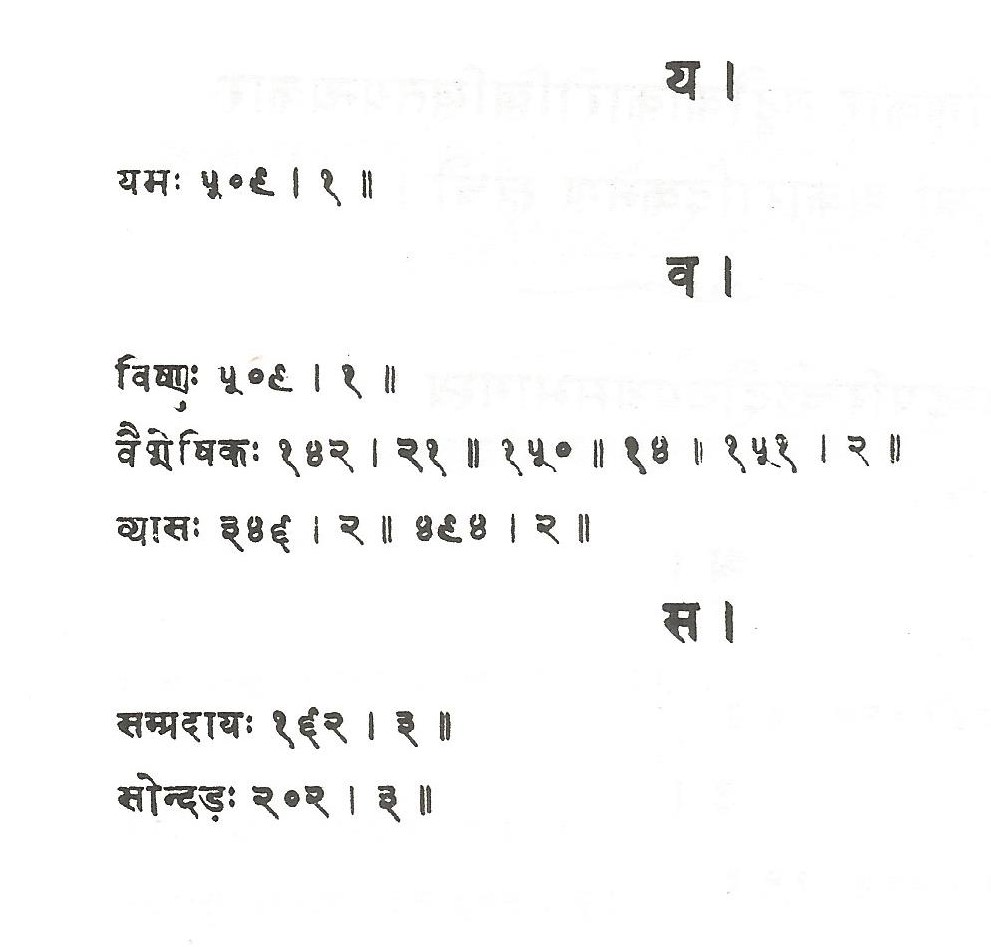 य ।
यमः ५०९ । १ ॥
व ।
विष्णुः ५०९ । १ ॥
वैशेषिकः १४२ । २१ ॥ १५० ॥ १४ ॥ १५१ । २ ॥
व्यासः ३४६ । २ ॥ ४९४ । २ ॥
स ।
सम्प्रदायः १६२ । ३ ॥
सोन्दड़ः २०२ । ३ ॥